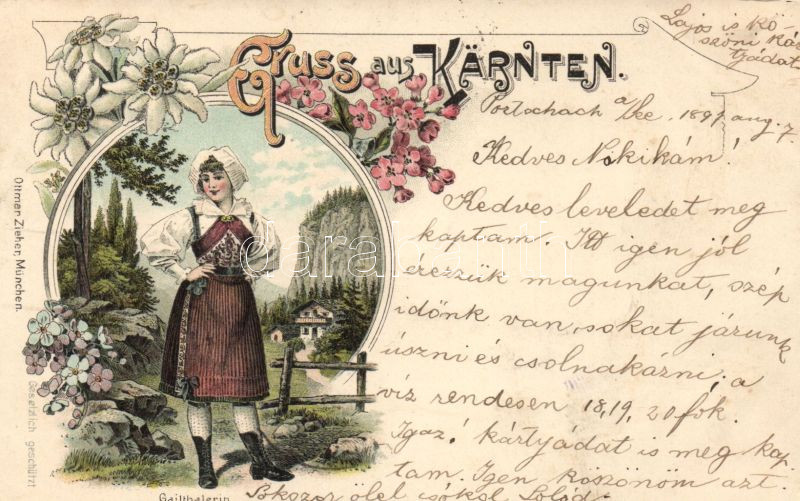 Gruss aus KÄRNTEN.
Lajos is kö-
szöni kár
tyádat
Portschach a/See 1897 aug. 7.
Kedves Nikikám!
Kedves leveledet meg
kaptam. Itt igen jól
érezzük magunkat, szép
időnk van, sokat járunk
úszni és csolnakázni; a
víz rendesen 18, 19, 20 fok.
Igaz! kártyádat is meg kap
tam. Igen köszönöm azt.
Sokszor ölel csókol
Ottmar Zieher, München.
Gesetzlich geschützt
Gailthalerin
darabanth